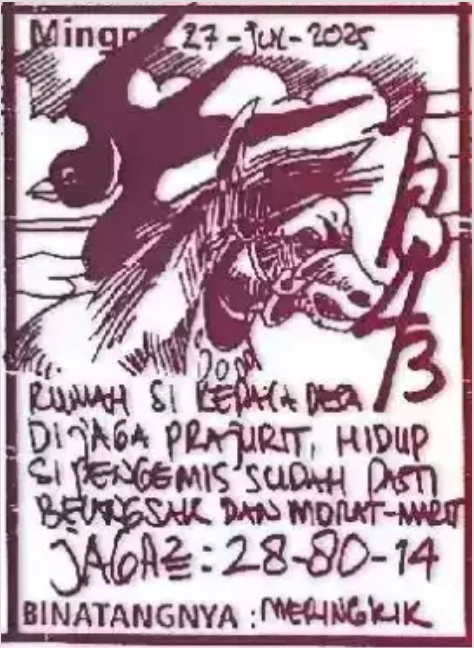 Mingg 27-JUL-2025
3
RUMAH SI KEPALA DESA
DIJAGA PRAJURIT, HIDUP
SI PENGEMIS SUDAH PASTI
BEUNGSAK DAN MORAT-MARIT
JAGA2 : 28-80-14
BINATANGNYA : MERINGKIK